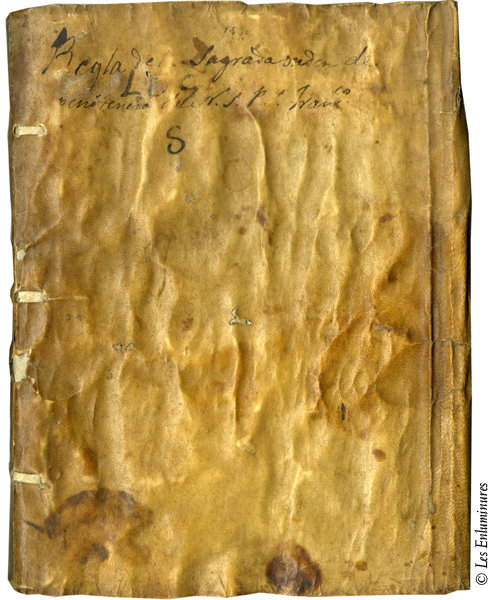 Regla del Sagrada orden de
penitencia de N. S. P.e Fran.co
S
© Les Enluminures